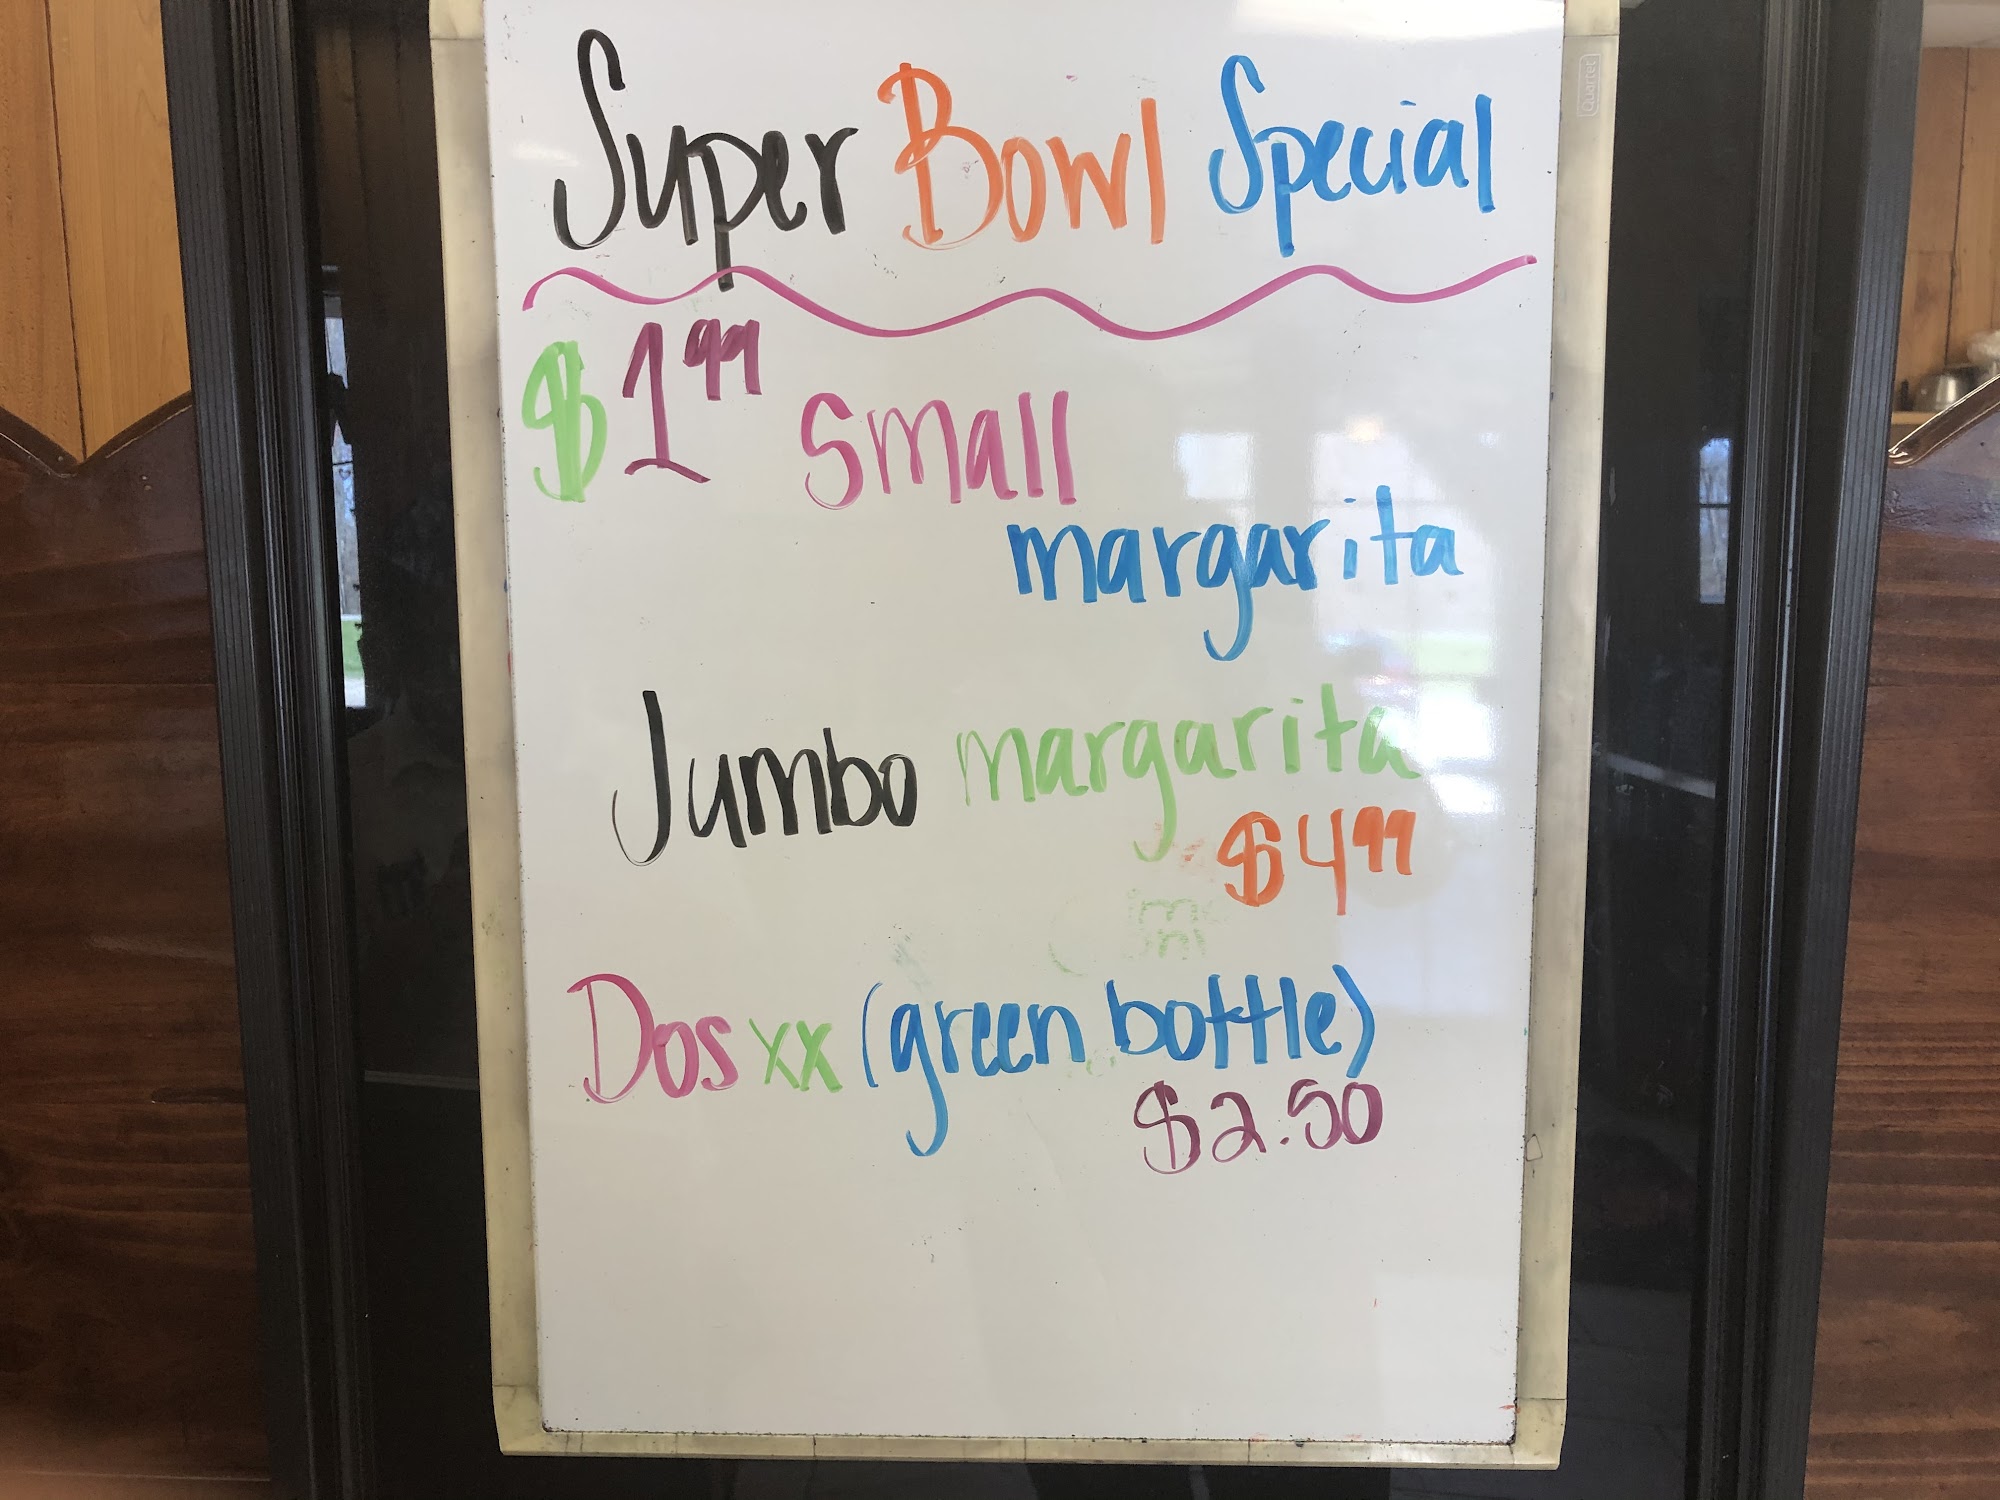 Super Bowl Special
$1.99 small
margarita
Jumbo margarita
$4.99
Dos xx (green bottle)
$2.50
Quartet